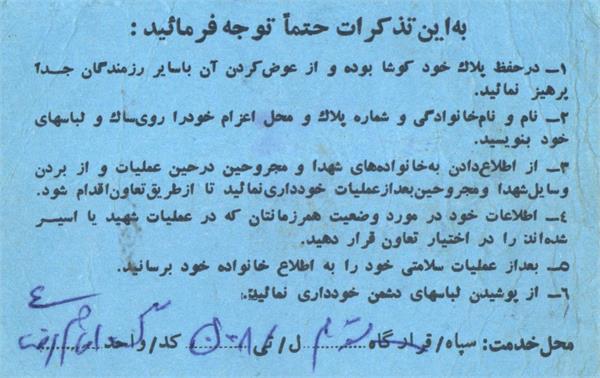 به این تذکرات حتماً توجه فرمائید :
۱ــ درحفظ پلاك خود کوشا بوده و از عوض‌کردن آن باسایر رزمندگان جداً
پرهیز نمائید.
۲ــ نام و نام‌خانوادگی و شماره پلاك و محل اعزام خودرا روی‌ساك و لباسهای
خود بنویسید.
۳ــ از اطلاع‌دادن به‌خانواده‌های شهدا و مجروحین درحین عملیات و از بردن
وسایل‌شهدا ومجروحین‌بعدازعملیات خودداری‌نمائید تا ازطریق‌تعاون‌اقدام شود.
٤ــ اطلاعات خود در مورد وضعیت همرزمانتان که در عملیات شهید یا اسیر
شده‌اند را در اختیار تعاون قرار دهید.
۵ــ بعداز عملیات سلامتی خود را به اطلاع خانواده خود برسانید.
۶ــ از پوشیدن لباسهای دشمن خودداری نمائید.
محل‌خدمت: سپاه/قرارگاه ل/تی کد/واحد